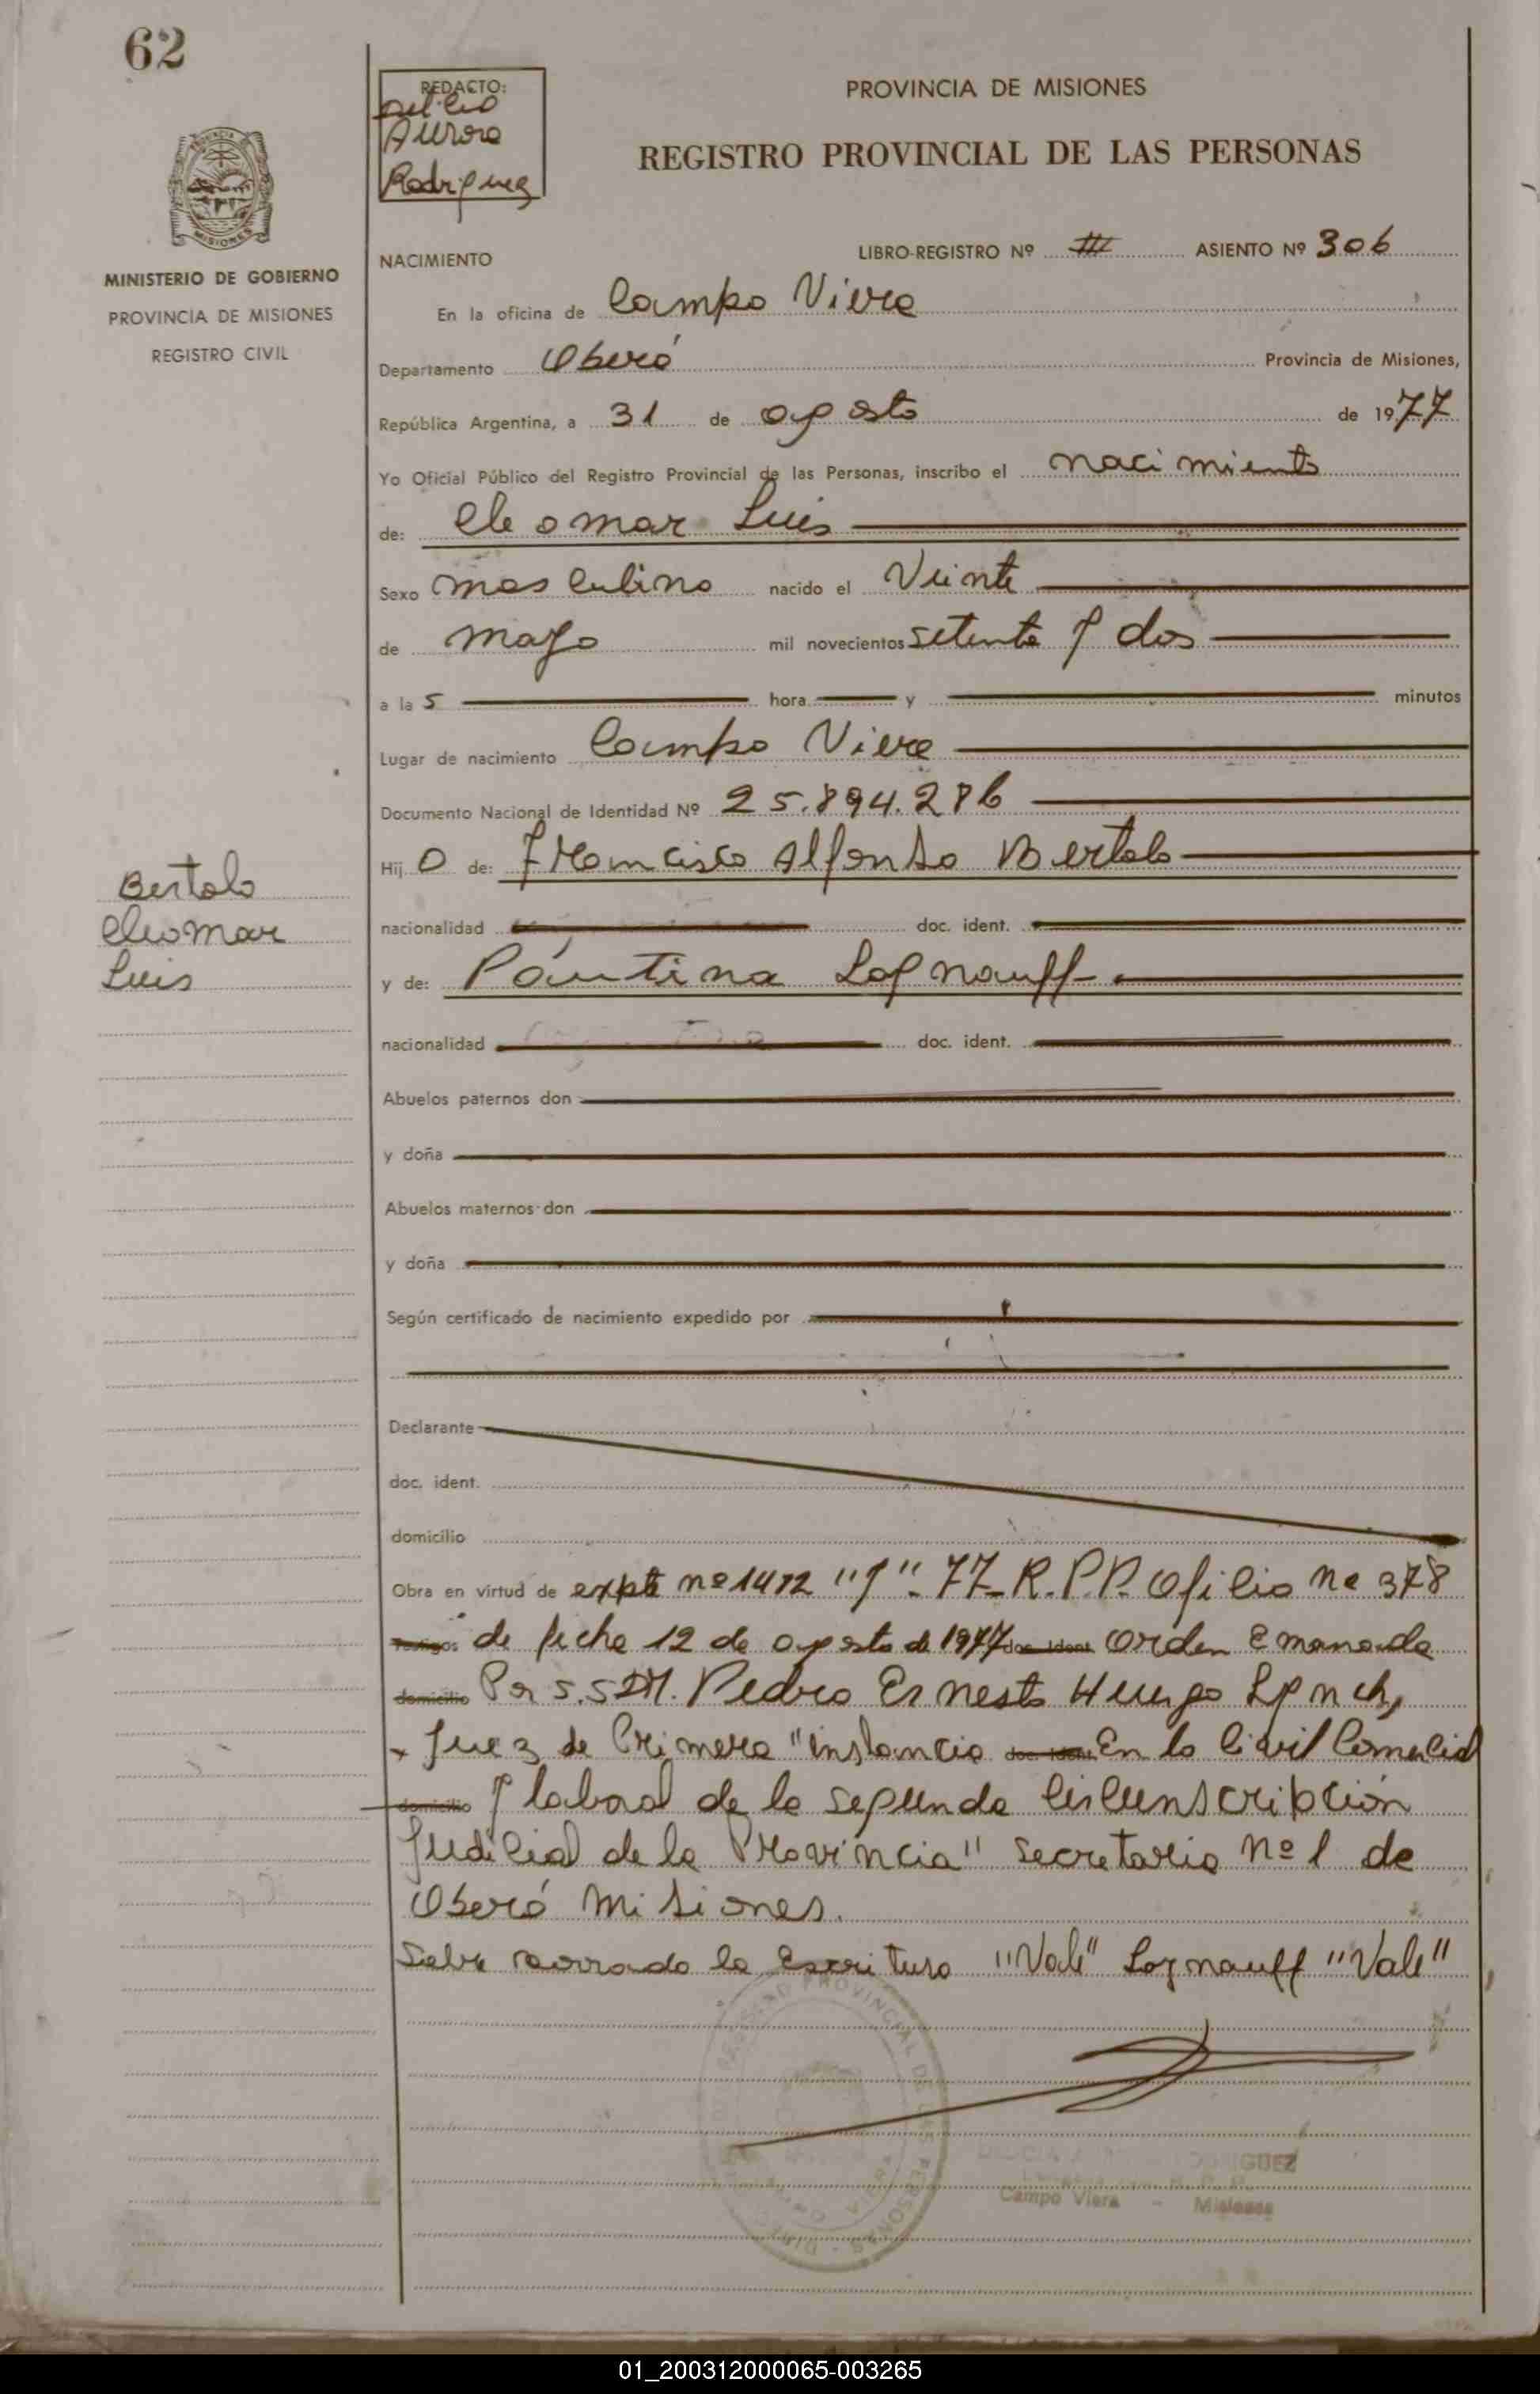 62
REDACTO:
Aurora
Rodriguez
PROVINCIA DE MISIONES
REGISTRO PROVINCIAL DE LAS PERSONAS
MISIONES
MINISTERIO DE GOBIERNO
PROVINCIA DE MISIONES
REGISTRO CIVIL
NACIMIENTO
LIBRO-REGISTRO Nº III ASIENTO Nº 306
En la oficina de Campo Viera
Departamento Oberá Provincia de Misiones,
República Argentina, a 31 de agosto de 1977
Yo Oficial Público del Registro Provincial de las Personas, inscribo el nacimiento
de: Cleomar Luis
Sexo masculino nacido el Veinte
de mayo mil novecientos setenta y dos
a la 5 hora y minutos
Lugar de nacimiento Campo Viera
Documento Nacional de Identidad Nº 25.894.286
Hij o de: Francisco Alfonso Bertolo
Bertolo
Cleomar
Luis
nacionalidad doc. ident.
y de: Pauntina Lognauff
nacionalidad doc. ident.
Abuelos paternos don
y doña
Abuelos maternos don
y doña
Según certificado de nacimiento expedido por
Declarante
doc. ident.
domicilio
Obra en virtud de expte nº 1412 "J" 77- R.P.P. Oficio nº 378
Testigos de fecha 12 de agosto de 1977 doc. ident. Orden Emanada
domicilio Por S.S. Pedro Ernesto Huergo Lynch,
Juez de Primera "instancia doc. ident. En lo Civil Comercial
domicilio y laboral de la segunda Circunscripción
Judicial de la Provincia" secretaria nº 1 de
Oberá Misiones.
Sobre borrado la Escritura "Vale" Lognauff "Vale"
REGISTRO PROVINCIAL DE LAS PERSONAS
Campo Viera - Misiones
01_200312000065-003265